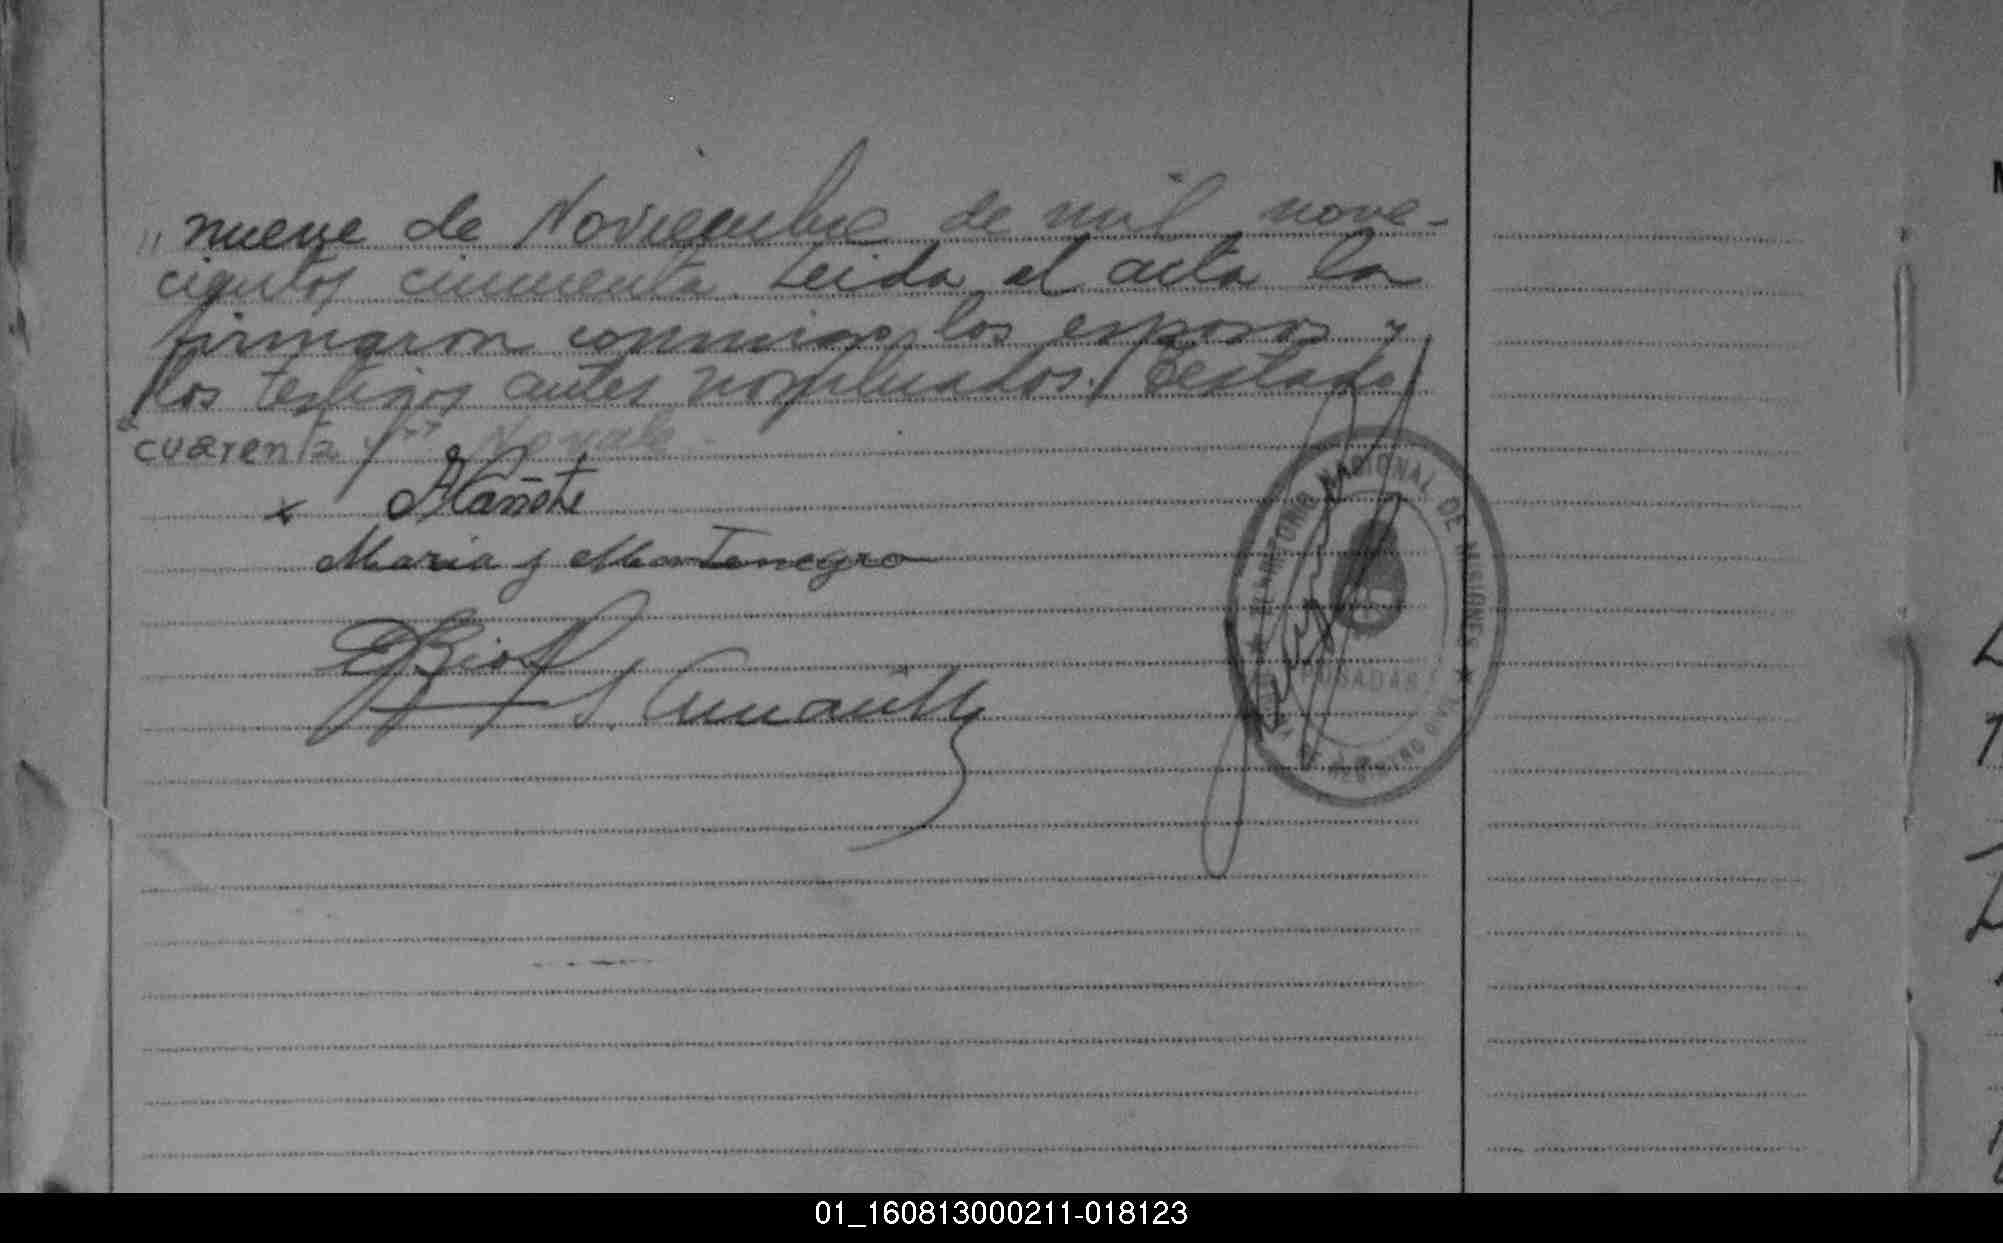 nueve de Noviembre de mil nove-
cientos cincuenta. Leida el acta la
firmaron conmigo los esposos y
los testigos antes nombrados. / Testado
"cuarenta" No vale.
x
Maria J Montenegro
TERRITORIO NACIONAL DE MISIONES
POSADAS
REGISTRO CIVIL
01_160813000211-018123